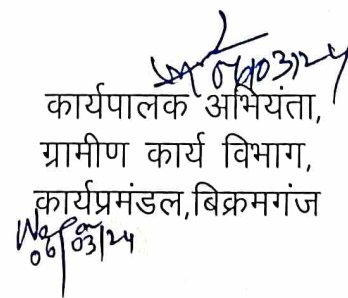 06/03/24
कार्यपालक अभियंता,
ग्रामीण कार्य विभाग,
कार्यप्रमंडल,बिक्रमगंज
06/03/24